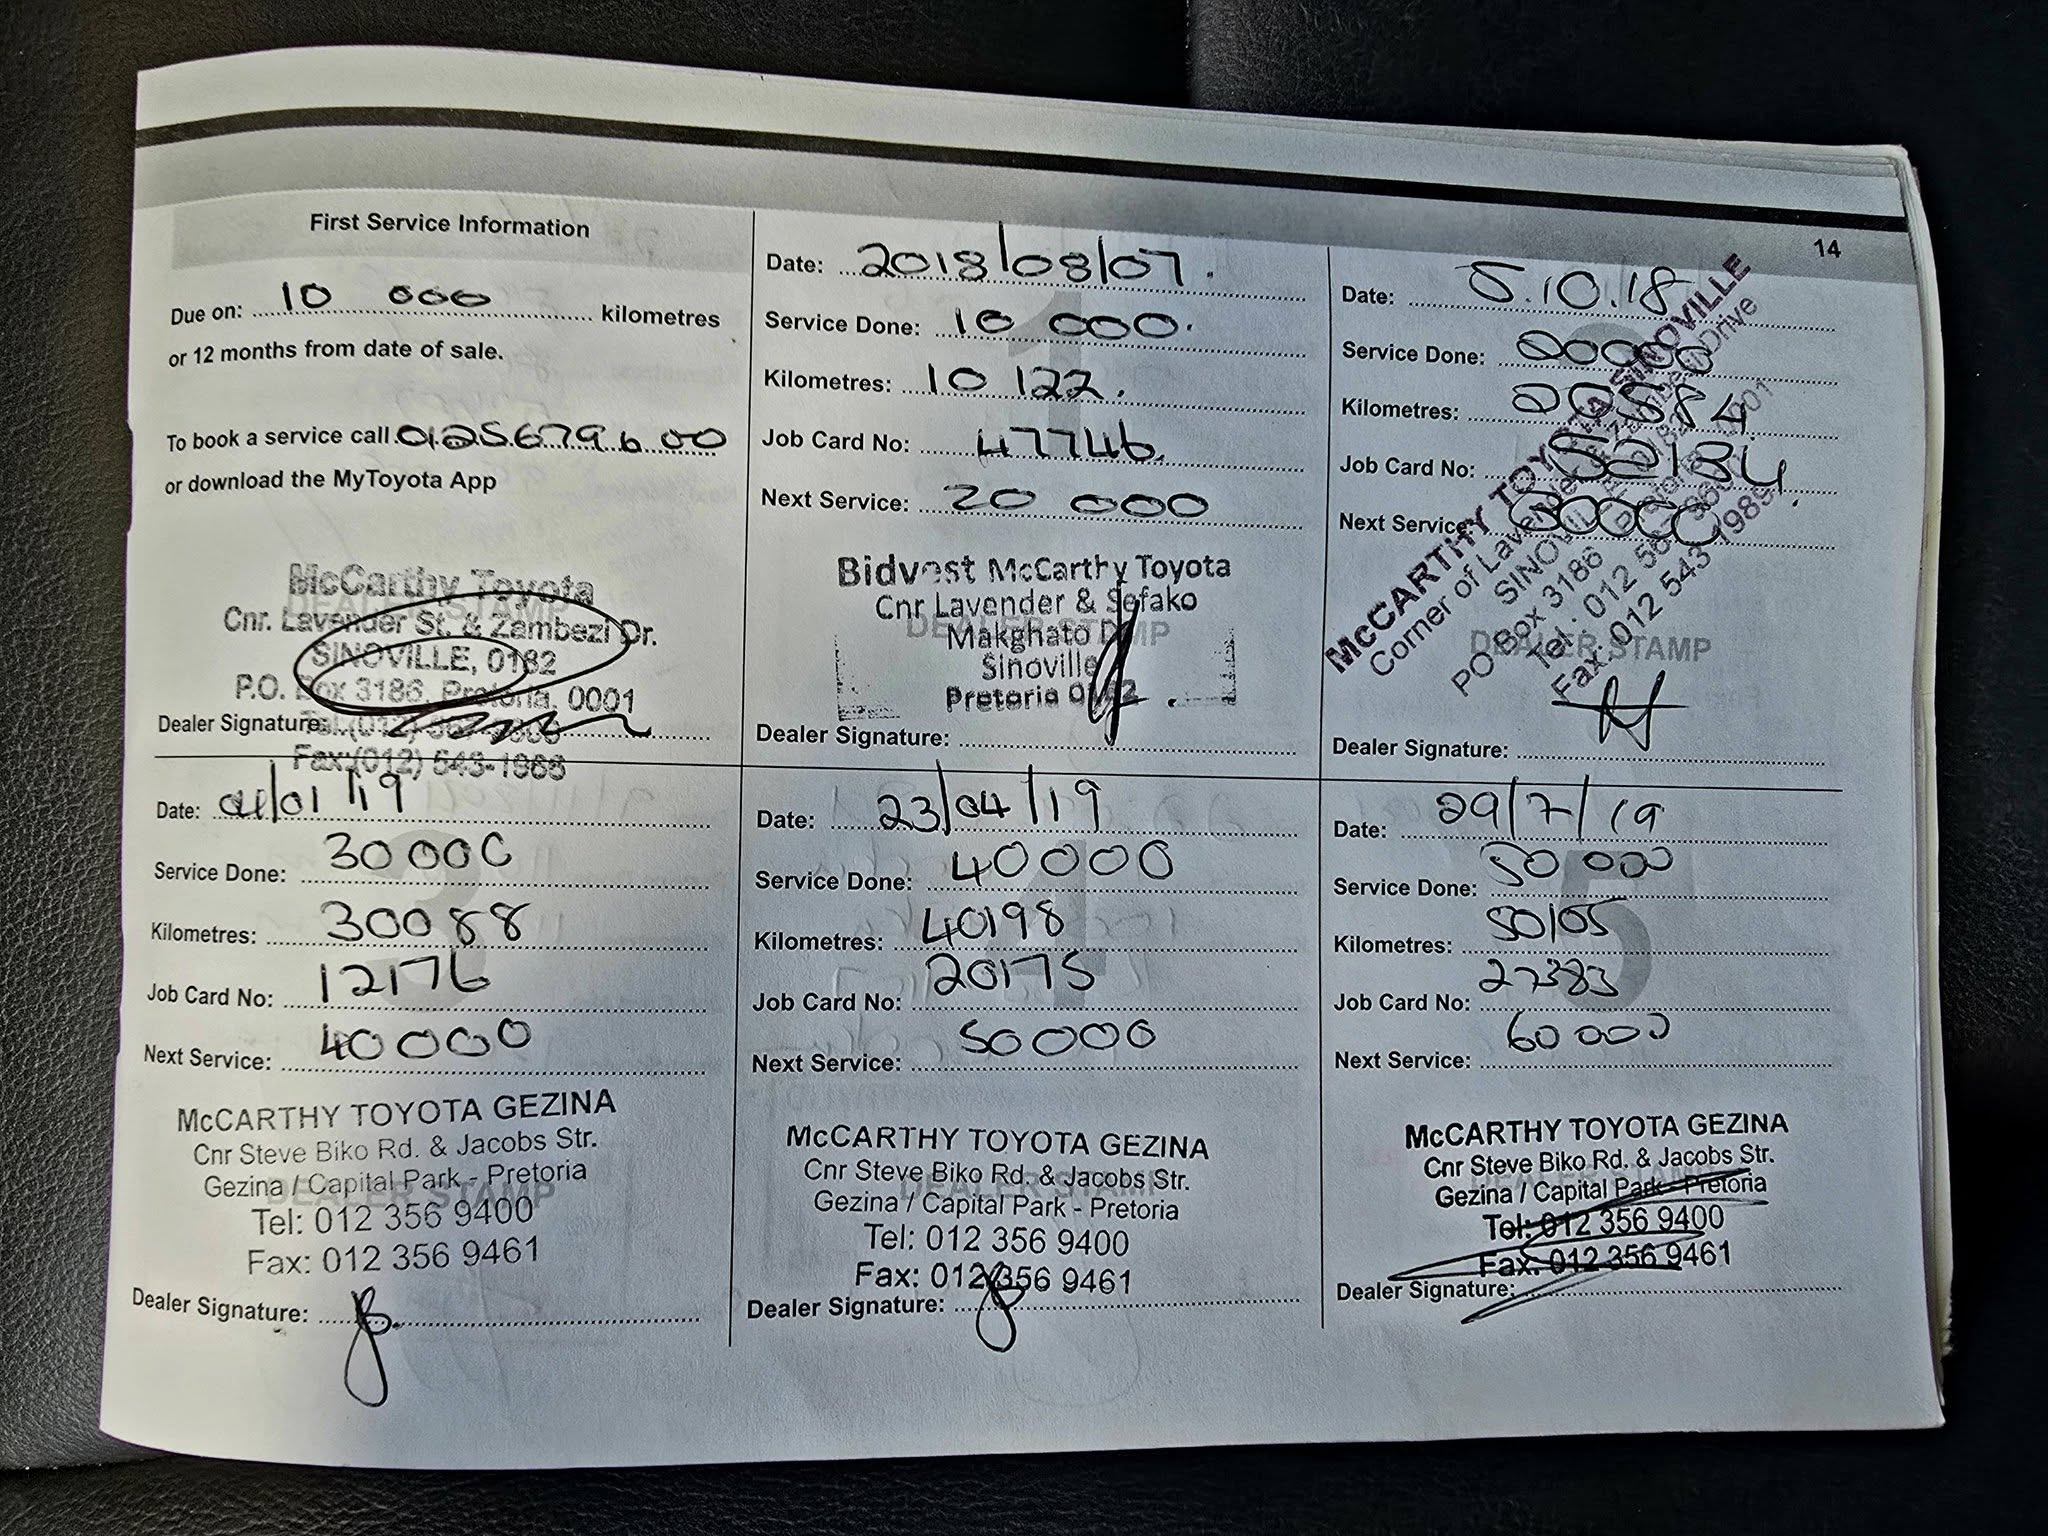 14
First Service Information
Due on: 10 000 kilometres
or 12 months from date of sale.
To book a service call 0125679600
or download the MyToyota App
McCarthy Toyota
Cnr. Lavender St. & Zambezi Dr.
SINOVILLE, 0182
P.O. Box 3186, Pretoria, 0001
Dealer Signature:
Tel.(012)
Fax:(012) 543-1988
1
Date: 2018/08/07.
Service Done: 10 000.
Kilometres: 10 122.
Job Card No: 47746.
Next Service: 20 000
DEALER STAMP
Bidvest McCarthy Toyota
Cnr Lavender & Sefako
Makghato
Sinoville
Pretoria 0182
Dealer Signature:
Date: 5.10.18
Service Done: 20000
Kilometres:
Job Card No: 52184
Next Service: 30000
DEALER STAMP
McCARTHY TOYOTA SINOVILLE
Corner of Lavender & Zambezi Drive
SINOVILLE
PO Box 3186 Pretoria 0001
Tel: 012 567
Fax: 012 543 1989
Dealer Signature:
3
Date: 04/01/19
Service Done: 30000
Kilometres: 30088
Job Card No: 12176
Next Service: 40000
DEALER STAMP
McCARTHY TOYOTA GEZINA
Cnr Steve Biko Rd. & Jacobs Str.
Gezina / Capital Park - Pretoria
Tel: 012 356 9400
Fax: 012 356 9461
Dealer Signature:
4
Date: 23/04/19
Service Done: 40000
Kilometres: 40198
Job Card No: 20175
Next Service: 50000
DEALER STAMP
McCARTHY TOYOTA GEZINA
Cnr Steve Biko Rd. & Jacobs Str.
Gezina / Capital Park - Pretoria
Tel: 012 356 9400
Fax: 012 356 9461
Dealer Signature:
5
Date: 29/7/19
Service Done: 50 000
Kilometres: 50105
Job Card No: 27383
Next Service: 60 000
McCARTHY TOYOTA GEZINA
Cnr Steve Biko Rd. & Jacobs Str.
Gezina / Capital Park - Pretoria
Tel: 012 356 9400
Fax: 012 356 9461
Dealer Signature: